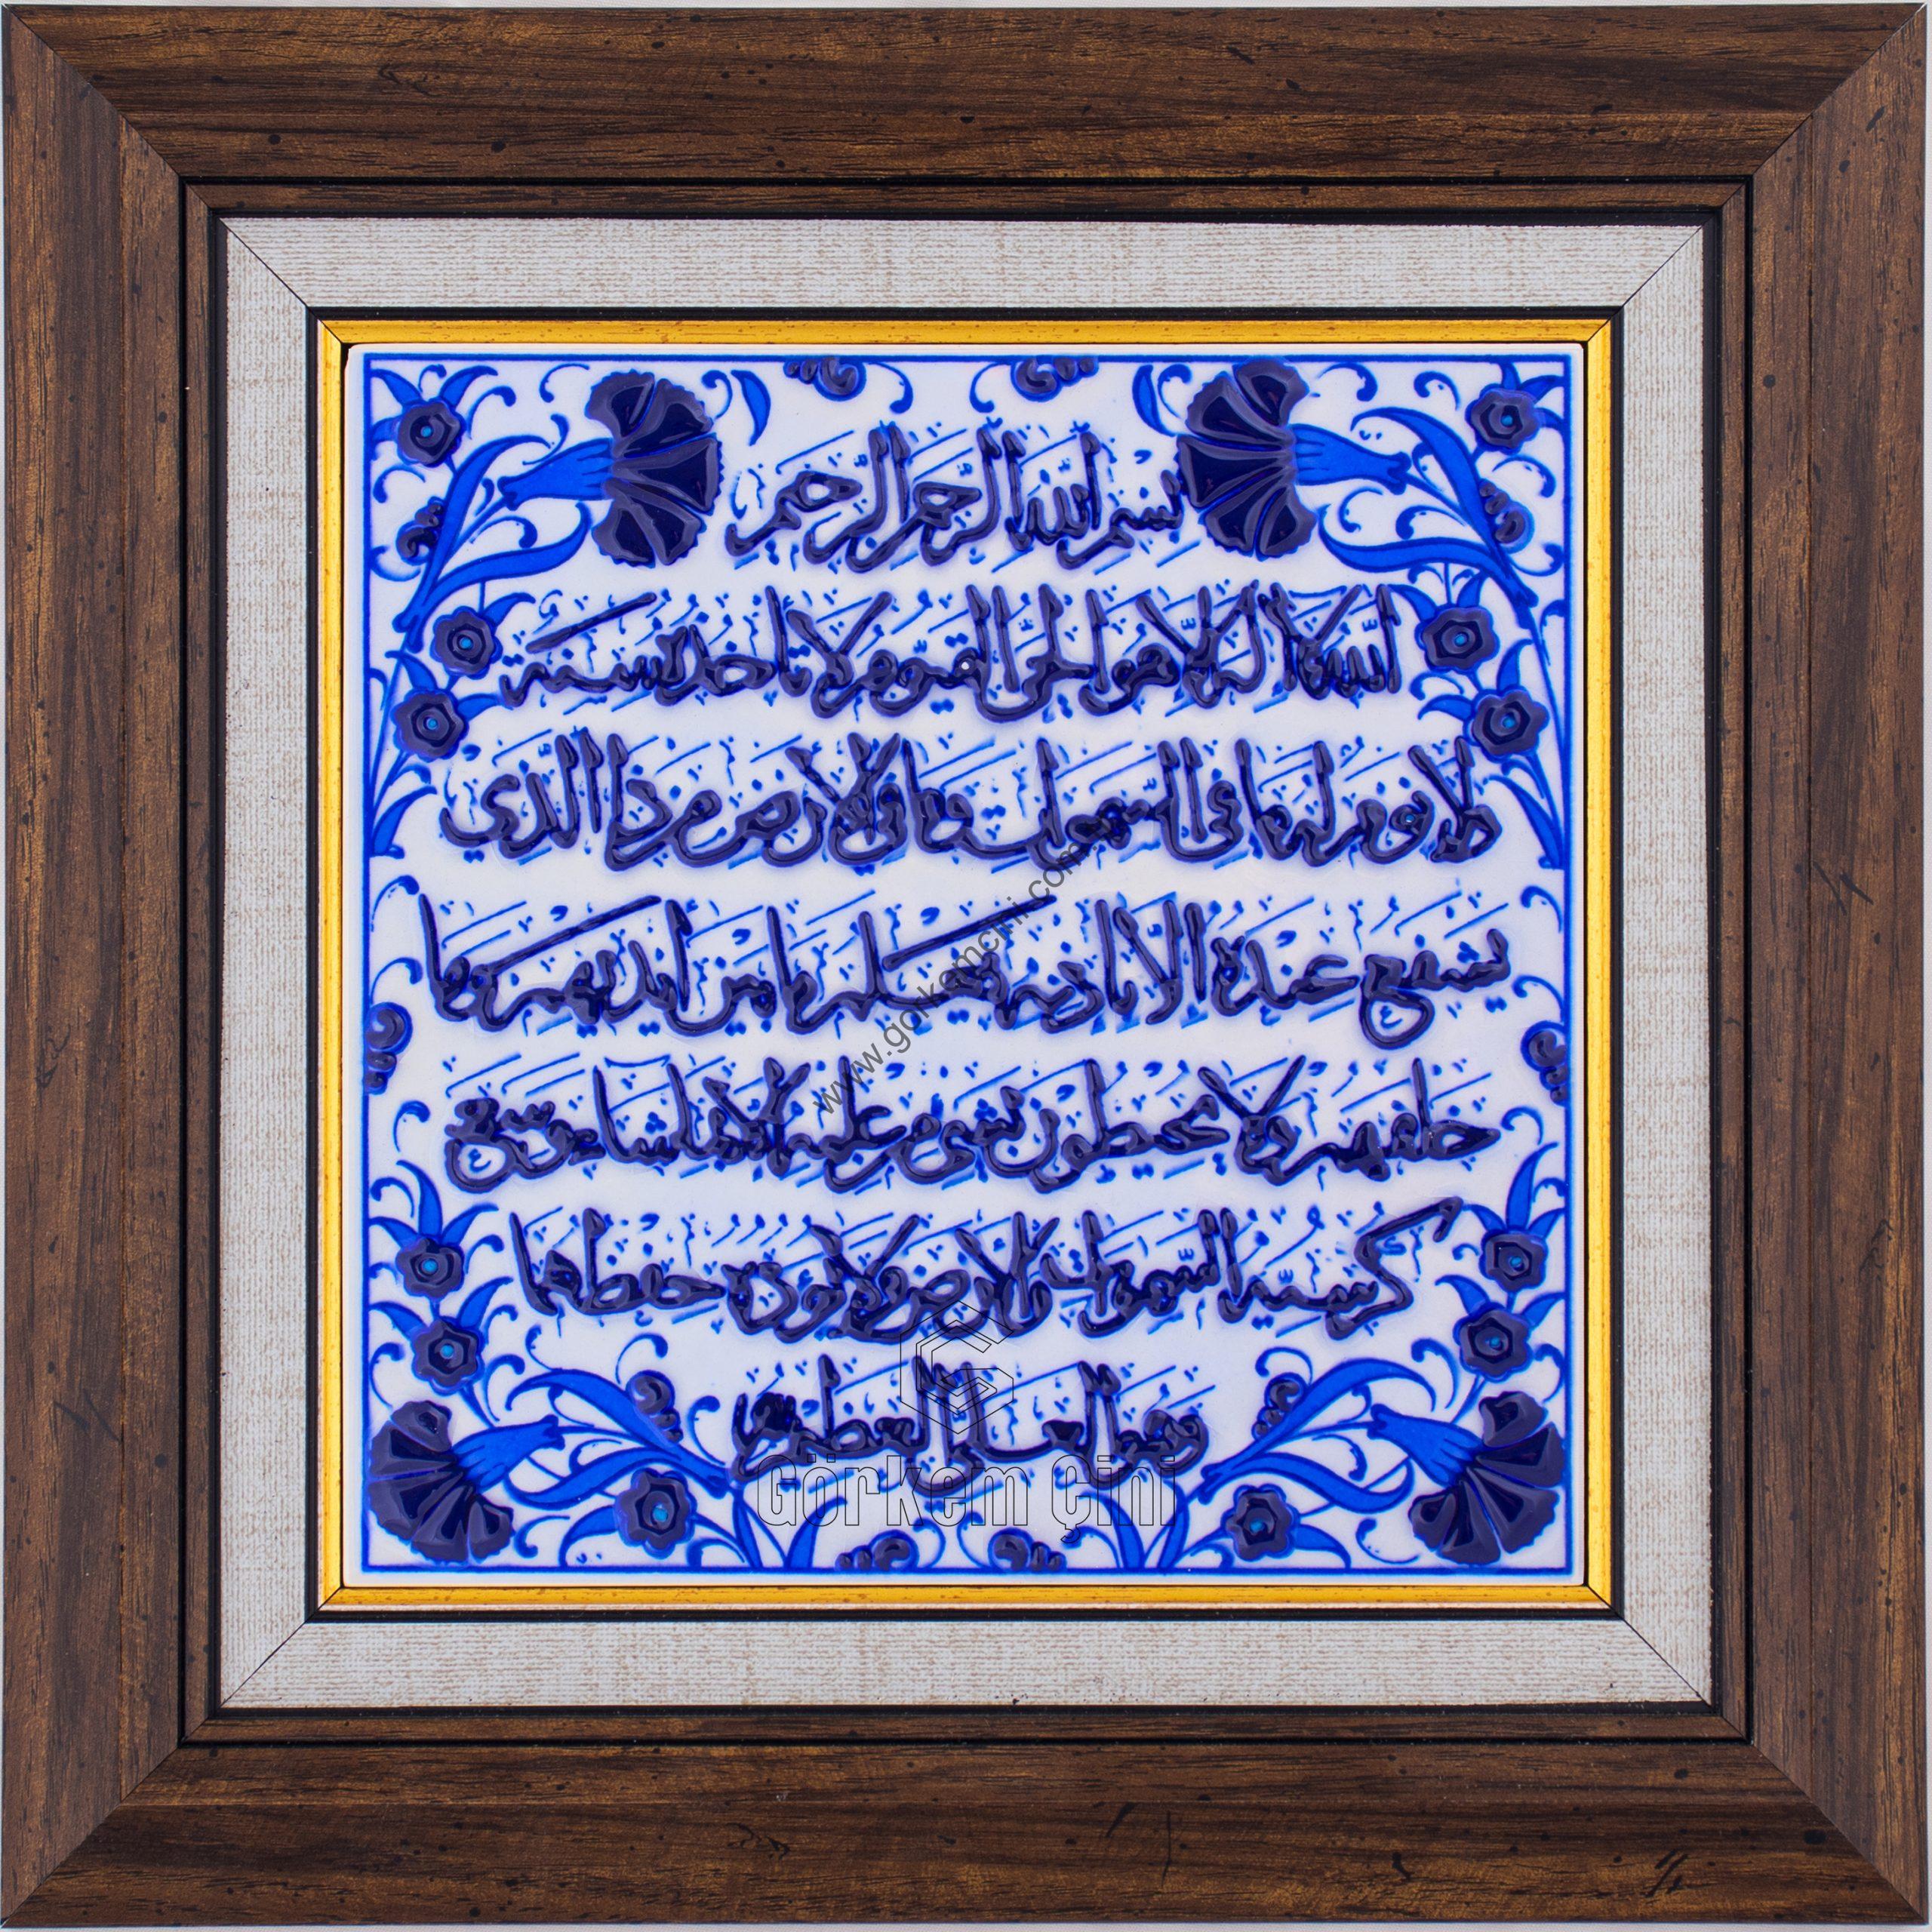 بسم الله الرحمن الرحيم
الله لا اله الا هو الحي القيوم لا تأخذه سنة
ولا نوم له ما في السموات وما في الارض من ذا الذي
يشفع عنده الا باذنه يعلم ما بين ايديهم وما
خلفهم ولا يحيطون بشيء من علمه الا بما شاء وسع
كرسيه السموات والارض ولا يؤده حفظهما
وهو العلي العظيم
www.gorkemcini.com
Görkem Çini